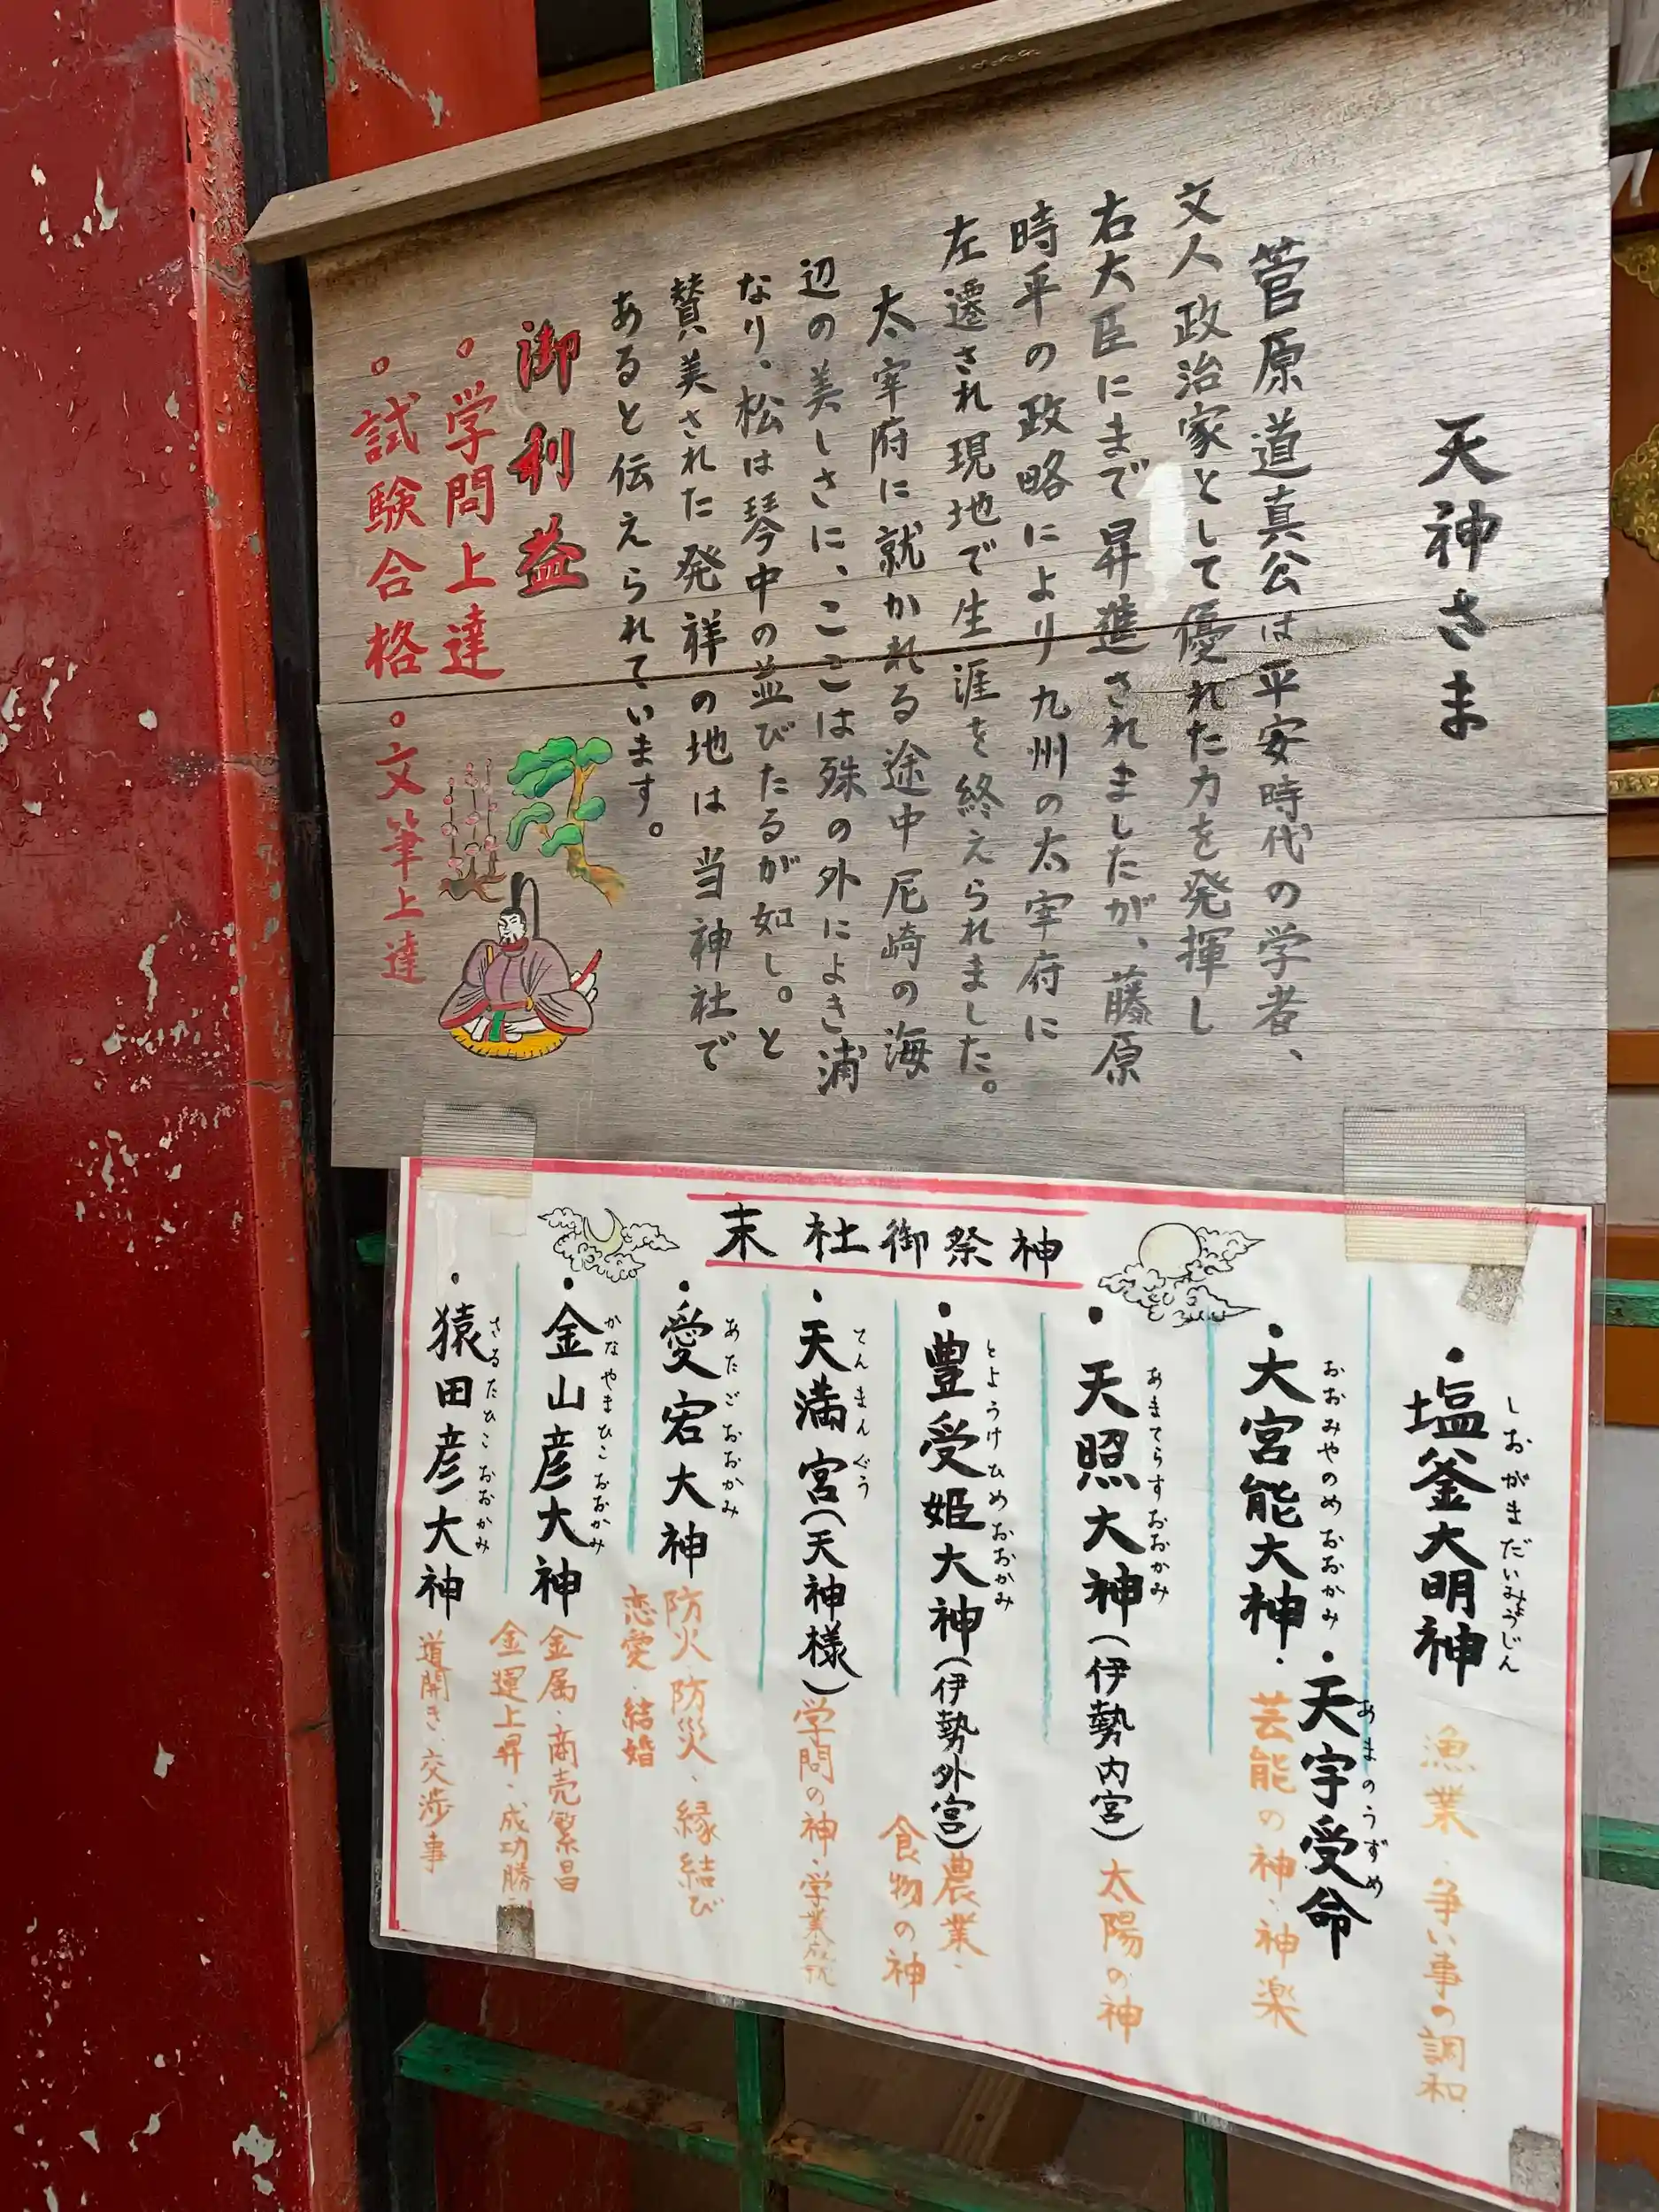 天神さま
菅原道真公は平安時代の学者、
文人政治家として優れた力を発揮し
右大臣にまで昇進されましたが、藤原
時平の政略により九州の太宰府に
左遷され現地で生涯を終えられました。
太宰府に就かれる途中尼崎の海
辺の美しさに、ここは殊の外によき浦
なり。松は琴中の並びたるが如し。と
賛美された発祥の地は当神社で
あると伝えられています。
御利益
。学問上達
。試験合格 。文筆上達
末社御祭神
・塩釜大明神 漁業・争い事の調和
しおがまだいみょうじん
・大宮能大神・天宇受命
おおみやのめおおかみ あまのうずめ
芸能の神・神楽
・天照大神(伊勢内宮) 太陽の神
あまてらすおおかみ
・豊受姫大神(伊勢外宮) 農業・
とようけひめおおかみ
食物の神
・天満宮(天神様) 学問の神・学業成就
てんまんぐう
・愛宕大神 防火、防災、縁結び
あたごおおかみ
恋愛・結婚
・金山彦大神 金属・商売繁昌
かなやまひこおおかみ
金運上昇・成功勝利
・猿田彦大神 道開き・交渉事
さるたひこおおかみ